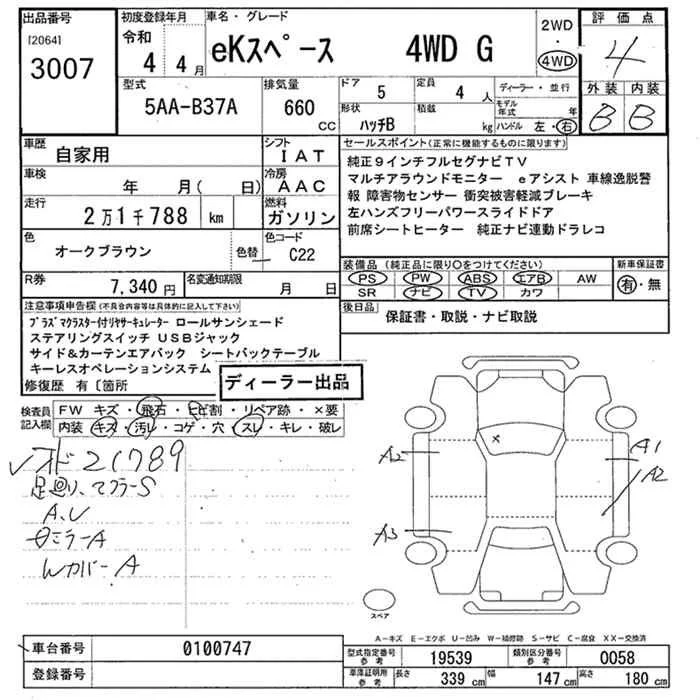 出品番号
[2064]
3007
初度登録年月
令和
4 4月
車名・グレード
eKスペース 4WD G
2WD
4WD
評価点
4
外装 内装
B B
型式
5AA-B37A
排気量
660 CC
ドア
5
定員
4 人
形状
ハッチB
積載
kg
ディーラー・並行
モデル年式 年
ハンドル 左・右
車歴
自家用
シフト
IAT
車検
年 月( 日)
冷房
AAC
走行
2万1千788 km
燃料
ガソリン
色
オークブラウン
色替
色コード
C22
R券
7,340円
名変通知期限
月 日
セールスポイント(正常に機能するものに限ります)
純正9インチフルセグナビTV
マルチアラウンドモニター eアシスト 車線逸脱警
報 障害物センサー 衝突被害軽減ブレーキ
左ハンズフリーパワースライドドア
前席シートヒーター 純正ナビ連動ドラレコ
装備品(純正品に限り○をつけてください)
PS PW ABS エアB AW
SR ナビ TV カワ
新車保証書
有・無
後日品
保証書・取説・ナビ取説
注意事項申告欄(不具合内容等は具体的に記入して下さい)
プラズマクラスター付リヤサーキュレーター ロールサンシェード
ステアリングスイッチ USBジャック
サイド&カーテンエアバック シートバックテーブル
キーレスオペレーションシステム
修復歴 有〔箇所
ディーラー出品
検査員記入欄
FW キズ・飛石・ヒビ割・リペア跡・×要
内装 キズ・汚レ・コゲ・穴・スレ・キレ・破レ
21789
足廻り、マフラーS
A、U
ミラーA
WカバーA
A2
A3
A1
A2
×
スペア
A−キズ E−エクボ U−凹み W−補修跡 S−サビ C−腐食 XX−交換済
車台番号
0100747
登録番号
型式指定番号 参考
19539
類別区分番号 参考
0058
車庫証明用 参考
長さ 339 cm
幅 147 cm
高さ 180 cm